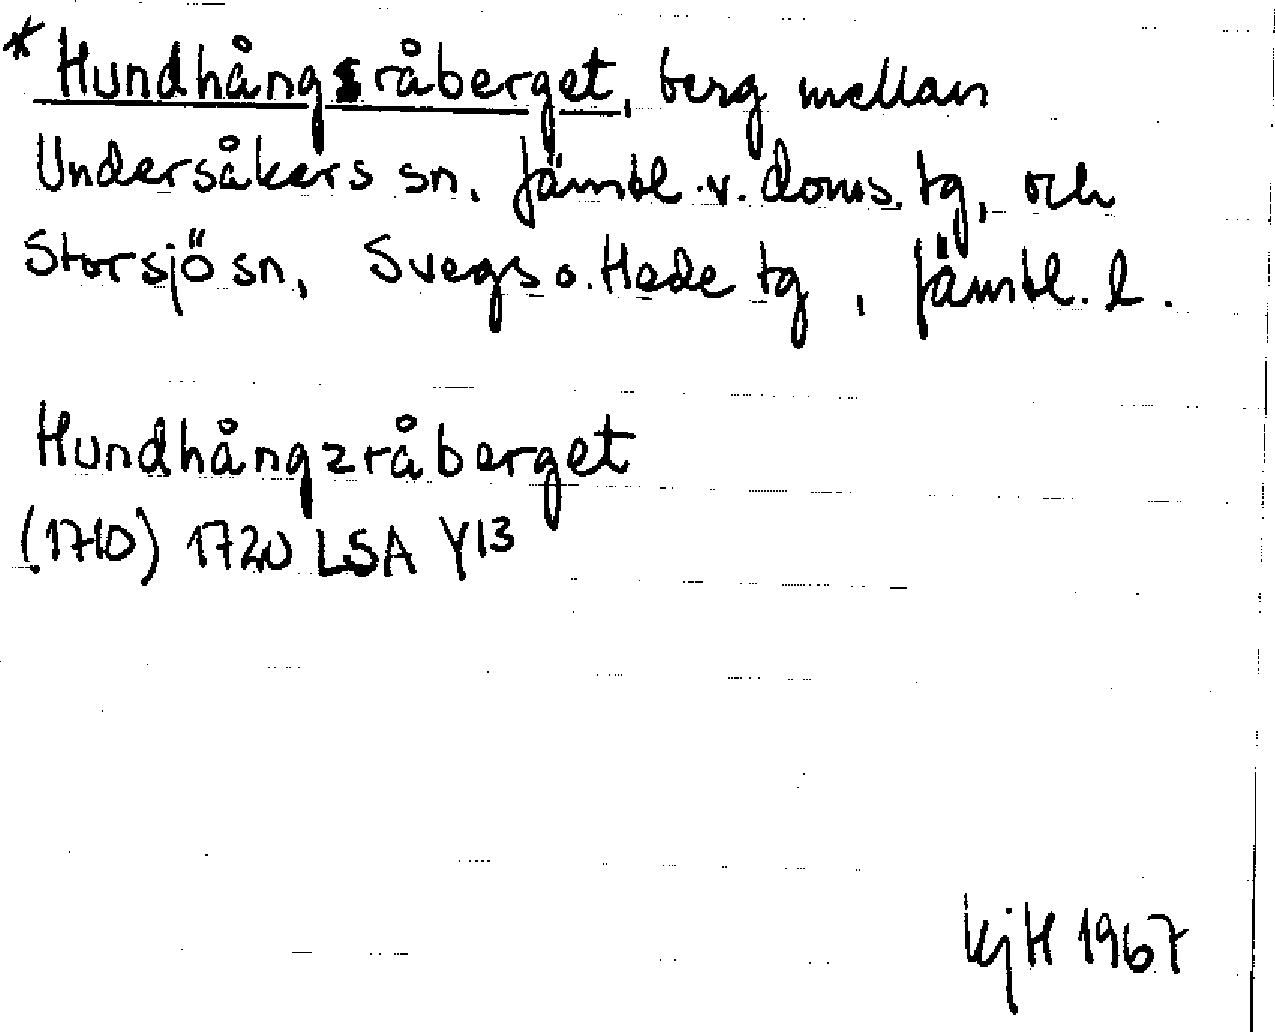 * Hundhångsråberget, berg mellan
Undersåkers sn, Jämtl. v. doms. tg, och
Storsjö sn, Svegs o. Hede tg, Jämtl. l.
Hundhångzråberget
(1710) 1720 LSA Y13
KjH 1967